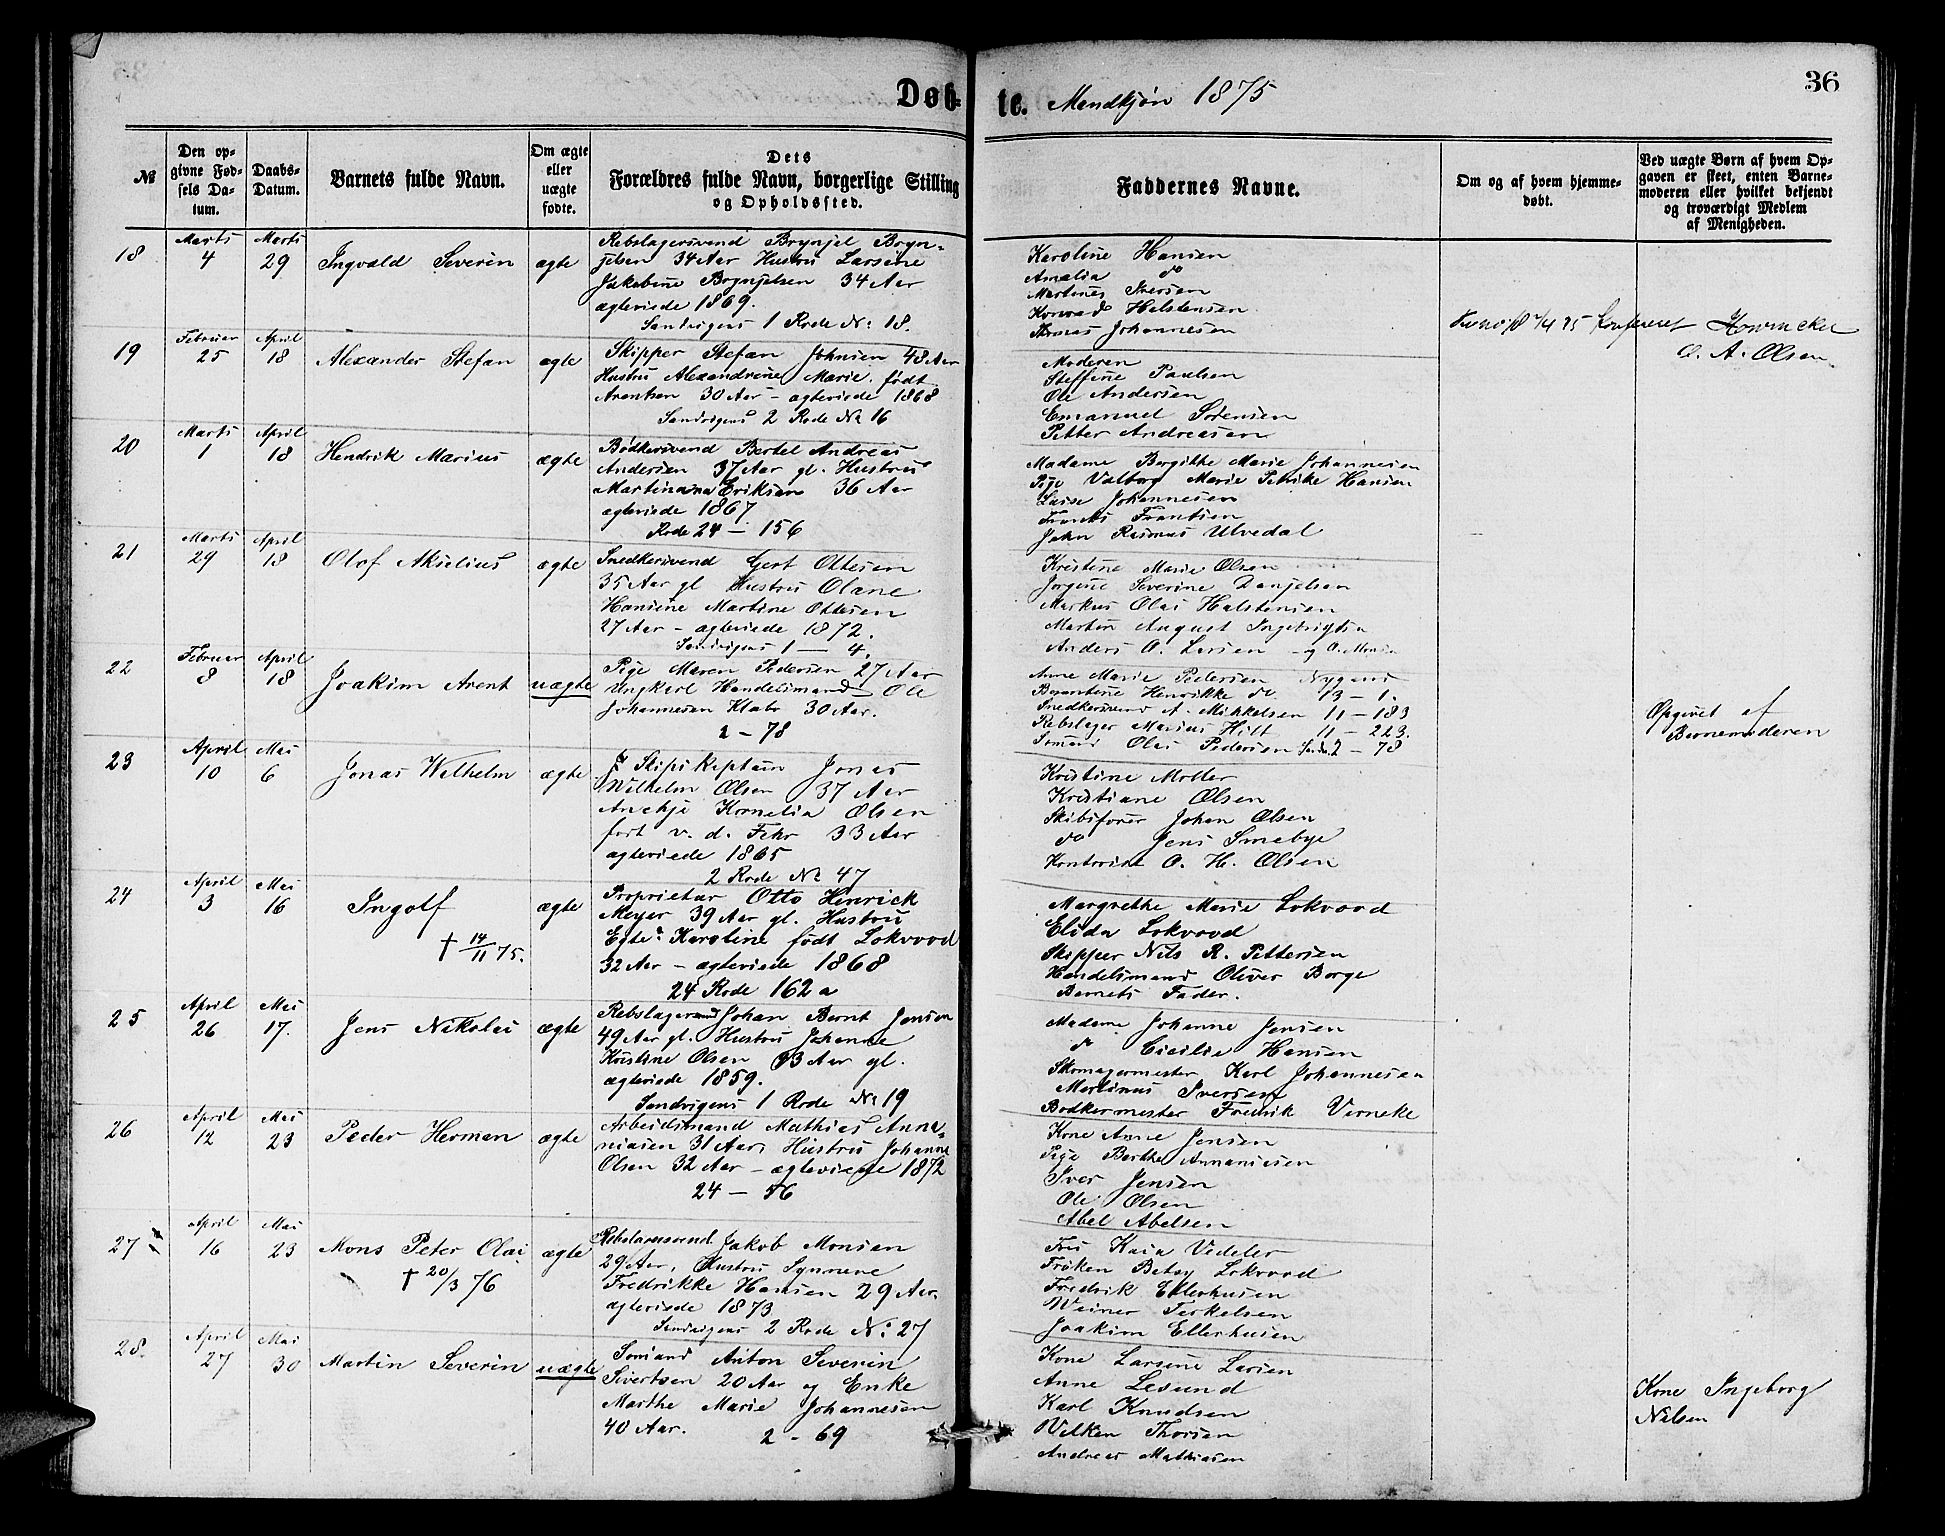 Døb-te. Mandkjøn 1875
36
№
Den op-
givne Fød-
sels Da-
tum.
Daabs-
Datum.
Barnets fulde Navn.
Om ægte
eller
uægte
fødte.
Dets
Forældres fulde Navn, borgerlige Stilling
og Opholdssted.
Faddernes Navne.
Om og af hvem hjemme-
døbt.
Ved uægte Børn af hvem Op-
gaven er skeet, enten Barne-
moderen eller hvilket bekjendt
og troværdigt Medlem
af Menigheden.
18
Marts
4
Marts
29
Ingvald Severin
ægte
Rebslagersvend Brynjel Bryn-
jelsen 34 Aar Hustru Larsene
Jakobine Brynjelsen 34 Aar
ægteviede 1869.
Sandvigens 1 Rode № 18.
Karoline Hansen
Amalia do
Martines Iversen
Konrad Halstensen
Thomas Johannesen
19
Februar
25
April
18
Alexander Stefan
ægte
Skipper Stefan Johnsen 48 Aar
Hustru Alexandrine Marie født
Arentsen 30 Aar - ægteviede 1868
Sandvigens 2 Rode № 16
Moderen
Steffine Paulsen
Ole Andersen
Emanuel Sørensen
Petter Andreasen
O. A. Olsen
20
Marts
1
April
18
Hendrik Marius
ægte
Bødkersvend Bertel Andreas
Andersen 37 Aar gl. Hustru
Martinana Eriksen 36 Aar
ægteviede 1867
Rode 24 - 156
Madame Bergitthe Marie Johannesen
Pige Valborg Marie Petrike Hansen
Lasse Johannesen
Frants Frantsen
John Rasmus Ulvedal
21
Marts
29
April
18
Olaf Akselius
ægte
Snedkersvend Gert Ottesen
35 Aar gl Hustru Olane
Hansine Martine Ottesen
27 Aar - ægteviede 1872.
Sandvigens 1 - 4.
Kristine Marie Olsen
Jørgine Severine Danjelsen
Markus Olai Halstensen
Martin August Ingebrigtsen
Anders O. Larsen
22
Februar
8
April
18
Joakim Arent
uægte
Pige Maren Pedersen 27 Aar
Ungkarl Handelsmand Ole
Johannesen Klabo 30 Aar.
2 - 78
Anne Marie Pedersen Nygaard
Berentine Henrikke do 13 - 1.
Snedkersvend A. Mikkelsen 11 - 183
Rebslager Marius Hilt 11 - 223.
Sømand Olai Pedersen Sandv. 2 - 78
Opgivet af
Barnemoderen
23
April
10
Mai
6
Jonas Wilhelm
ægte
Skipskaptain Jonas
Wilhelm Olsen 37 Aar
Anethje Kornelia Olsen
fort v. d. Fehr 33 Aar
ægteviede 1865
2 Rode № 47
Kristine Moller
Kristiane Olsen
Skibsfører Johan Olsen
do Jens Smebye
Kontorist O. H. Olsen
24
April
3
Mai
16
Ingolf
† 14/11 75.
ægte
Proprietær Otto Henrick
Meyer 39 Aar gl. Hustru
Egte. Karoline født Lokvood
32 Aar - ægteviede 1868
24 Rode 162 a
Margrethe Marie Lokvood
Elida Lokvood
Skipper Nils R. Pettersen
Handelsmand Oliver Borge
Barnets Fader.
25
April
26
Mai
17.
Jens Nikolai
ægte
Rebslagersvend Johan Bernt Jensen
49 Aar gl. Hustru Johanne
Kristine Olsen 33 Aar gl.
ægteviede 1859.
Sandvigens 1 Rode № 19
Madame Johanne Jensen
do Cicilie Hansen
Skomagermester Karl Johannesen
Martinus Iversen
Bødkermester Fredrik Verneke
26
April
12
Mai
23
Peder Herman
ægte
Arbeidsmand Mathias Anna-
niasen 31 Aar, Hustru Johanne
Olsen 32 Aar - ægteviede 1872
24 - 56
Kone Anne Jensen
Pige Berthe Annaniasen
Iver Jensen
Ole Olsen
Abel Abelsen
27
April
16
Mai
23
Mons Peter Olai
† 20/3 76
ægte
Rebslagersvend Jakob Monsen
29 Aar, Hustru Synneve
Fredrikke Hansen 29 Aar.
ægteviede 1873
Sandvigens 2 Rode № 27
Fru Kaia Vedeler
Frøken Betsy Lokvood
Fredrik Ellerhusen
Weiner Terkelsen
Joakim Ellerhusen
28.
April
27
Mai
30
Martin Severin
uægte
Sømand Anton Severin
Sivertsen 20 Aar og Enke
Marthe Marie Johannesen
40 Aar.
2 - 69
Kone Larsine Larsen
Anne Lesund
Karl Knudsen
Vilken Thorsen
Andreas Mathiasen
Kone Ingeborg
Nilsen